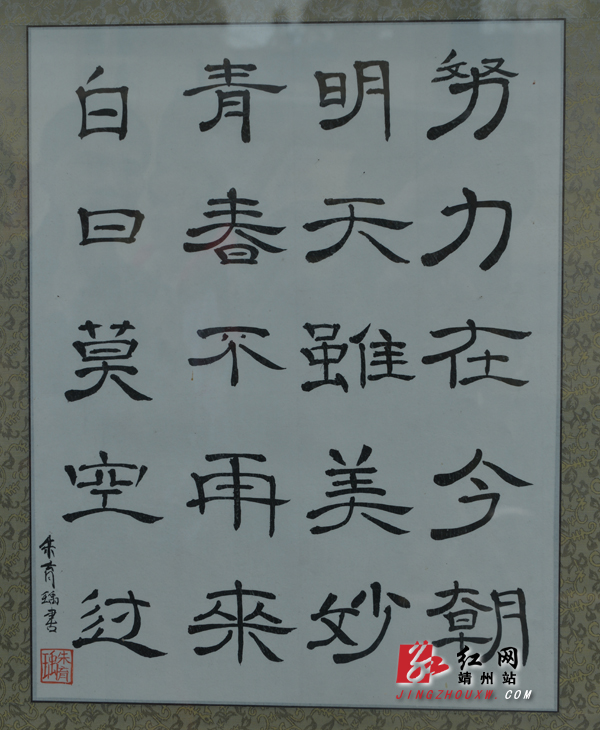 努力在今朝
明天雖美妙
青春不再來
白日莫空过
朱育書
红网
靖州站
JINGZHOUXW.COM